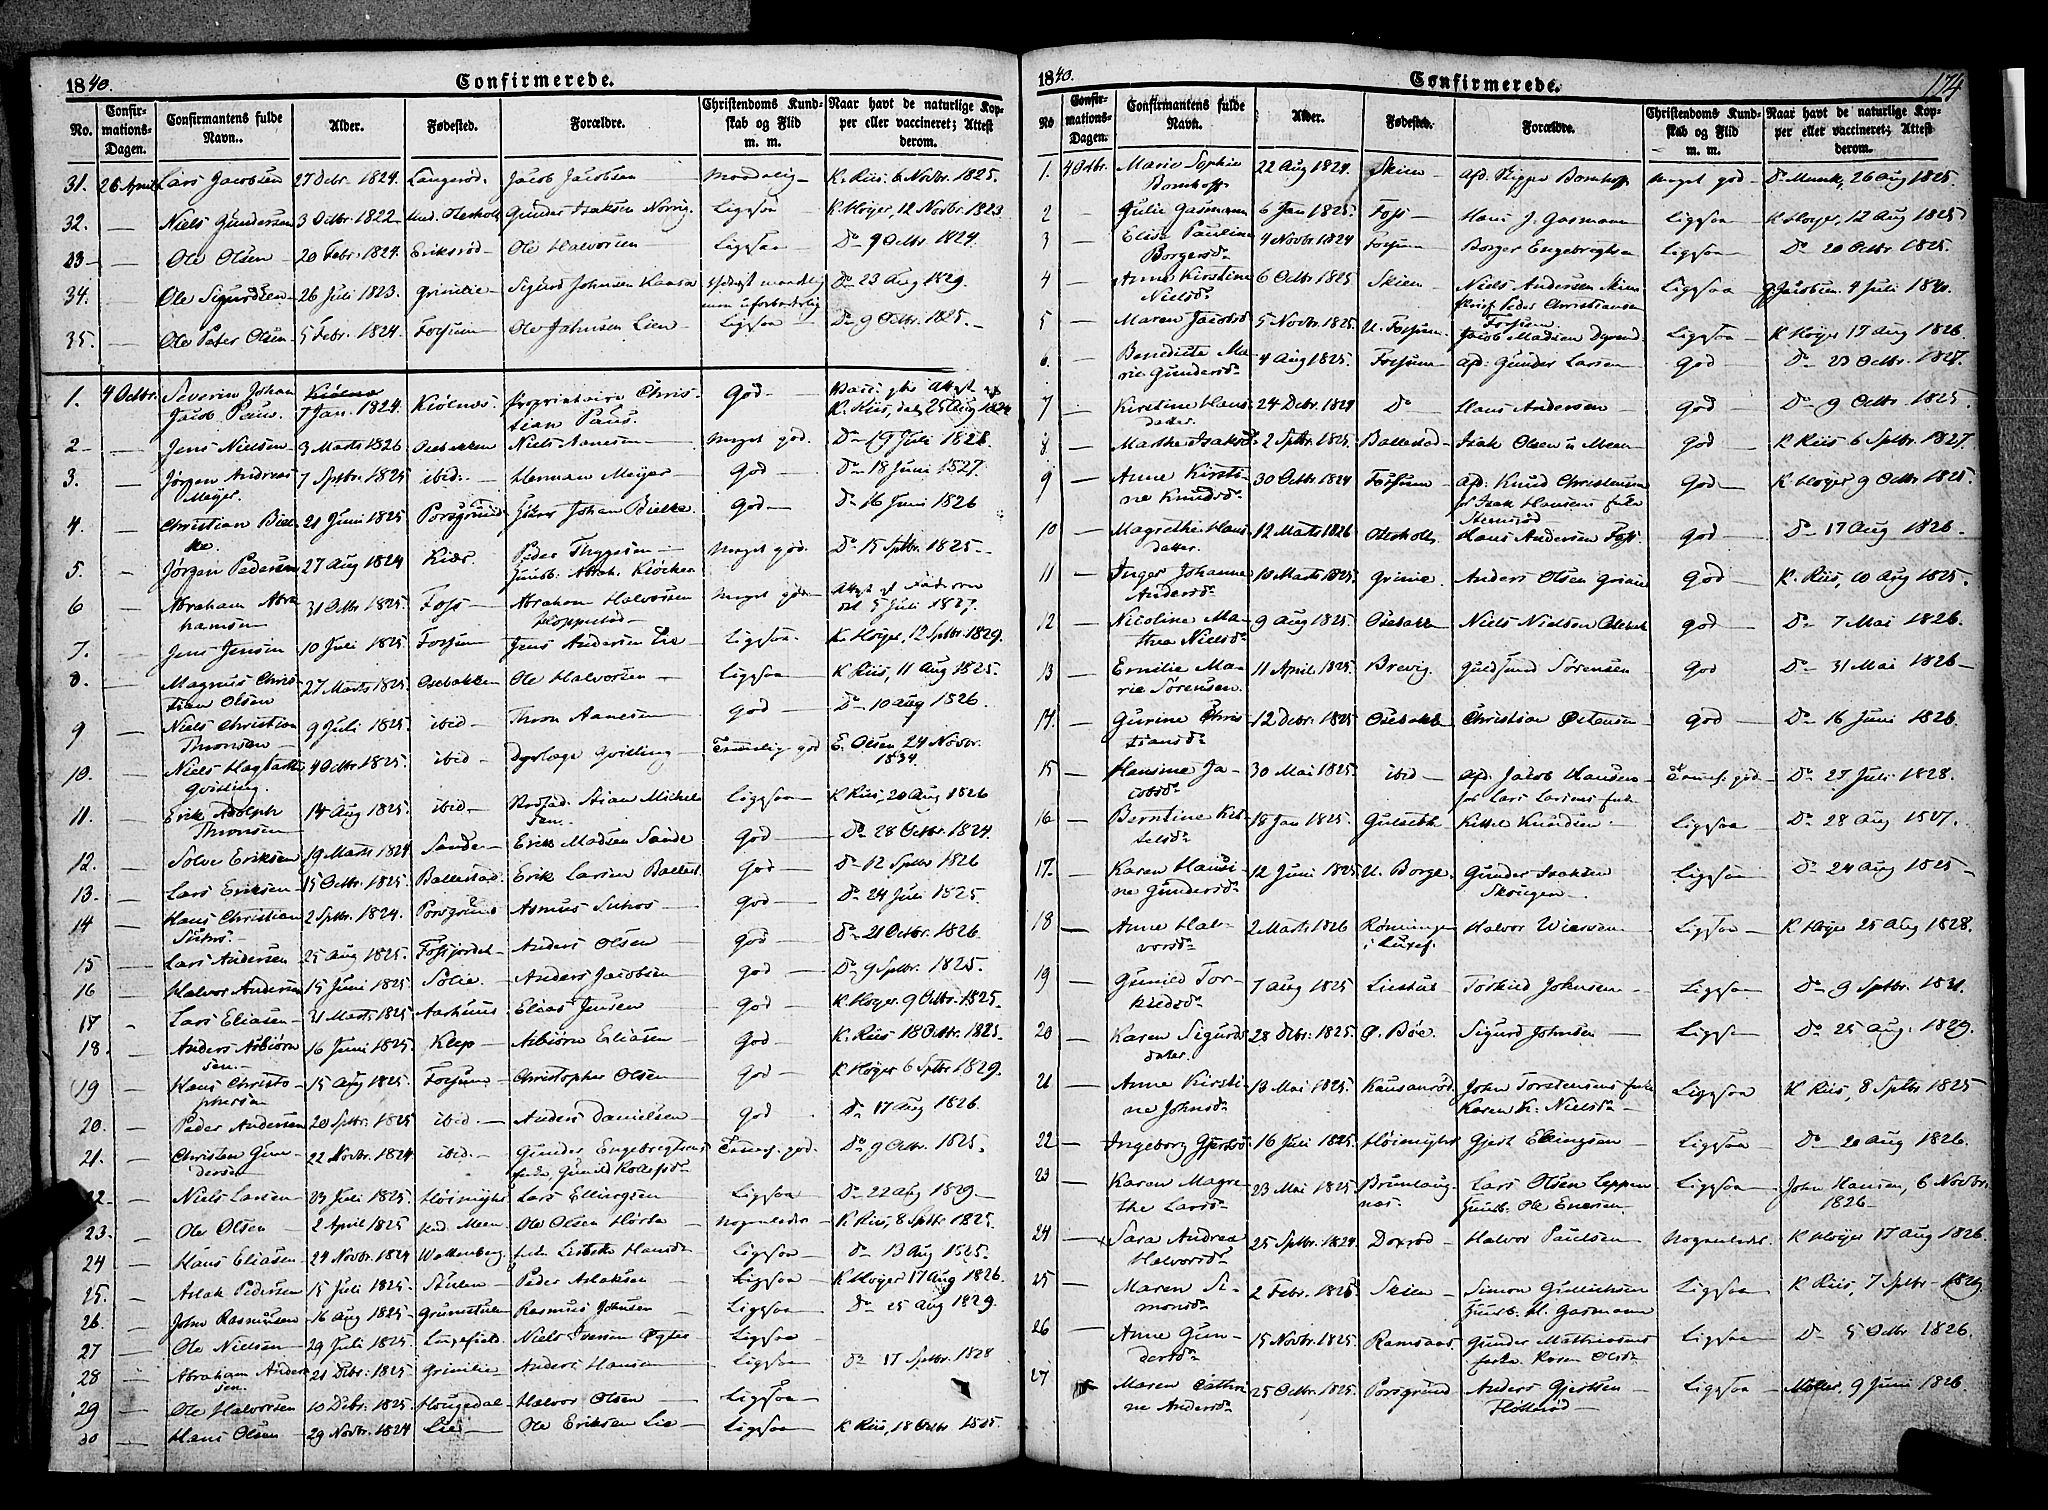 1840.
Confirmerede.
No.
Confir-
mations-
Dagen.
Confirmantens fulde
Navn.
Alder.
Fødested.
Forældre.
Christendoms Kund-
skab og Flid
m. m.
Naar havt de naturlige Kop-
per eller vaccineret; Attest
derom.
31. 26 April Lars Jacobsen 27 Debr. 1824. Langerød. Jacob Jacobsen maadelig K. Riis. 6 Novbr. 1825.
32. Niels Gundersen 3 Octbr 1822 Gunder Isaksen Ligesaa K Høyer, 12 Novbr. 1823
33 Ole Olsen 20 Febr. 1824. Eriksrød Ole Halvorsen Ligesaa Do 9 Octbr 1824.
34. Ole Sigurdsen 26 Juli 1823. Grinilie Sigurd Johnsen Do 23 Aug 1829.
35. Ole Peter Olsen 5 Febr. 1824. Fossum Ole Johnsen Lien Ligesaa Do 9 Octbr. 1825.
1. 4 Octbr. Severin Johan
Jacob Paus. 7 Jan. 1824. Kiøenæs Proprietaire Chris-
tian Paus. God K. Riis, dat. 25 Aug 1824
2 Jens Nielsen 3 Marts 1826 Osebakken Niels Aanesen meget god. Do 19 Juli 1828.
3. Jørgen Andreas
Meyer. 7 Sptbr. 1825 ibid. Herman Meyer God Do 18 Juni 1827.
4. Christian Biel-
ke. 21 Juni 1825 Porsgrund Johan Bielke God Do 16 Juni 1826
5. Jørgen Pedersen 27 Aug 1824 Kiær Peder Thygesen
meget god. Do 15 Sptbr. 1825
6 Abraham Abra
hamsen 31 Octbr 1825. Foss Abraham Halvorsen
Kloppestad meget god Attest af Faderen
dat 5 Juli 1827.
7. Jens Jensen 10 Juli 1825. Fossum Jens Andersen Lie Ligesaa K. Høyer, 12 Sptbr. 1829.
8. Magnus Chris-
tian Olsen 27 Marts 1825. Osebakken Ole Halvorsen Ligesaa K Riis, 11 Aug 1825.
9 Niels Christian
Thronsen 9 Juli 1825. ibid Thron Aanesen God Do 10 Aug 1826.
10. Niels Hagbarth
Qvisling. 4 Octbr 1825. ibid Dyrlæge Qvisling Temmelig god E. Olsen 24 Novbr.
1834.
11. Erik Adolph
Thronsen 14 Aug 1825. ibid Stian Michel-
sen. Ligesaa K Riis, 20 Aug 1826
12. Solve Eriksen 19 Marts 1824 Sande Erik Madsen Sande God Do 28 Octbr. 1824.
13. Lars Eriksen 15 Octbr. 1825 Ballestad Erik Larsen Ballest. God Do 12 Sptbr 1826
14 Hans Christian
Suhrs. 2 Sptbr. 1824. Porsgrund Asmus Suhrs God Do 24 Juli 1825.
15 Lars Andersen 25 Aug 1825. Fossjordet Anders Olsen God Do 21 Octbr. 1826.
16 Halvor Andersen 15 Juni 1825. Solie Anders Jacobsen God Do 9 Sptbr. 1825.
17 Lars Eliasen 31 Marts 1825 Aarhuus Elias Jensen God K Høyer. 9 Octbr. 1825.
18. Anders Asbiørn
sen. 16 Juni 1825. Klep Asbiørn Eliasen God K. Riis 18 Octbr. 1825.
19 Hans Christo
phersen 15 Aug 1825. Fossum Christopher Olsen God K Høyer 6 Sptbr 1829.
20. Peder Andersen 20 Sptbr. 1825 ibid. Anders Danielsen God Do 17 Aug 1826.
21. Christen Gun-
dersen 22 Novbr. 1824 ibid. Gunder Engebregtsens
Enke Gunild Rollefsdr Temml. god. Do 9 Octbr. 1825.
22. Niels Larsen 23 Juli 1825. Høimyhr Lars Ellingsen Ligesaa Do 22 Aug 1829
23. Ole Olsen 2 April 1825 Ned. Meen Ole Olsen Nogenledes K Riis, 8 Sptbr 1825.
24 Hans Eliasen 24 Novbr. 1824 Waltenberg Lisbeth Hansdr Ligesaa Do 13 Aug 1825.
25. Aslak Pedersen 15 Juli 1825. Stulen Peder Aslaksen Ligesaa K Høyer 17 Aug 1826.
26. John Rasmussen 16 Aug 1825 Grumstulen Rasmus Johnsen Ligesaa Do 25 Aug 1829.
27 Ole Nielsen 29 Juli 1825. Niels Iversen Ligesaa
28 Abraham Ander
sen. 21 Debr. 1825 Grinilie Anders Hansen Ligesaa Do 17 Sptbr. 1828
29 Ole Halvorsen 10 Debr. 1825 Hougedal Halvor Olsen Ligesaa
30 Hans Olsen 29 Novbr. 1824 Lie Ole Eriksen Lie Ligesaa K Riis, 18 Octbr 1825.
1840.
Confirmerede.
174
No
Confir-
mations-
Dagen.
Confirmantens fulde
Navn.
Alder.
Fødested.
Forældre.
Christendoms Kund-
skab og Flid
m. m.
Naar havt de naturlige Kop-
per eller vaccineret; Attest
derom.
1. 4 Octbr. Marie Sophie
Bomhoff 22 Aug 1824. Skien afd. Bomhoff meget god Dr Munk, 26 Aug 1825.
2 Julie Gasmann 6 Jan 1825. Foss Hans J. Gasmann Ligesaa K Høyer, 12 Aug 1825
3 Elise Pauline
Borgersdr 4 Novbr. 1824 Fossum Borger Engebregtsen Ligesaa Do 20 Octbr. 1825.
4 Anne Kirstine
Nielsdr 6 Octbr 1825 Skien Niels Andersen Skien
Peder Christiansen
Fossum Ligesaa Jacobsen 4 Juli 1840.
5 Maren Jacobsd 5 Novbr. 1825. N. Fossum Jacob Madsen Ligesaa K Høyer 17 Aug 1826.
6. Benedicte Ma-
rie Gundersdr 4 Aug 1825. Fossum afd. Gunder Larsen God Do 23 Octbr. 1827.
7 Kirstine Hans-
datter. 24 Debr. 1824 Do Hans Andersen God Do 9 Octbr. 1825.
8. Marthe Isaksd 2 Sptbr. 1825. Ballestad Isak Olsen God K Riis 6 Sptbr. 1827.
9 Anne Kirsti-
ne Knudsdr 30 Octbr 1824 Fossum afd. Knud Christensen
Isak Hansens Enke
Steensrød God K Høyer 9 Octbr. 1825.
10 Magrethe Hans
datter. 12 Marts 1826 Osterholt Hans Andersen Foss God Do 17 Aug 1826
11 Inger Johanne
Andersdr 10 Marts 1825. Grinie. Anders Olsen Grinie God K. Riis, 10 Aug 1825.
12 Nicoline Ma-
thea Nielsdr 9 Aug 1825. Osebakk. Niels Nielsen Osebak God Do 7 Mai 1826.
13 Emilie Ma-
rie Sørensen. 11 April 1825. Brevig. Guldsmed Sørensen God Do 31 Mai 1826
14. Gurine Chris
tiansdr 12 Debr. 1825 Osebakk. Christian Ostensen God Do 16 Juni 1826.
15 Hansine Ja-
cobsdr 30 Mai 1825. ibid afd. Jacob Hansen
Lars Larsens Enke Temmel. god Do 27 Juli 1828.
16 Berntine Kit-
telsdr 18 Jan 1825. Gulseth Kittel Knudsen Ligesaa Do 28 Aug 1827.
17. Karen Hansi-
ne Gundersdr 12 Juni 1825 N. Borge. Gunder Isaksen
Skougen Ligesaa Do 24 Aug 1825
18 Anne Hal-
vorsdr 2 Marts 1826 Rønningen
i Halvor Ligesaa K Høyer 25 Aug 1828.
19 Gunild Tor-
kildsdr 7 Aug 1825 Liestul Torkild Johnsen Ligesaa Do 9 Sptbr. 1831.
20 Karen Sigurds
datter. 28 Debr. 1825. Ø. Bøe. Sigurd Johnsen Ligesaa Do 25 Aug. 1829.
21 Anne Kirsti-
ne Johnsdr 13 Mai 1825. John Torstensens Enke
Karen K. Nielsdr Ligesaa K Riis, 8 Sptbr 1825
22 Ingeborg Gjertsd 16 Juli 1825. Høimyhr Gjert Ellingsen Ligesaa Do 20 Aug 1826.
23 Karen Magre-
the Larsdr 23 Mai 1825 Brunlaug-
næs. Lars Olsen
Ole Ligesaa John Hansen, 6 Novbr.
1826
24 Sara Andrea
Halvorsdr 25 Sptbr. 1824. Doxrød Halvor Paulsen Nogenledes K Høyer 17 Aug 1826.
25 Maren Si-
monsdr 2 Febr. 1825. Skien Simon Gullichsen
H. Gasmann Ligesaa K Riis, 7 Sptbr 1829.
26 Anne Gun-
dersdr 15 Novbr. 1825. Ramsaas Gunder Mathiesens
Enke Karen Olsdr Ligesaa Do 5 Octbr 1826.
27 Maren Cathri
ne Andersdr 25 Octbr. 1825. Porsgrund Anders Gjertsen
Flotterød Ligesaa Møller, 9 Juni 1826.